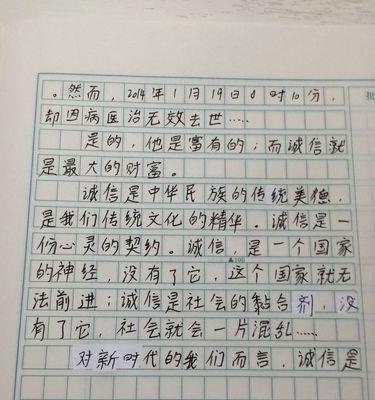 。然而，2014年1月19日0时10分，
却因病医治无效去世……
是的，他是富有的；而诚信就
是最大的财富。
诚信是中华民族的传统美德，
是我们传统文化的精华。诚信是一
份心灵的契约。诚信，是一个国家
▲100
的神经，没有了它，这个国家就无
法前进；诚信是社会的黏合剂，没
有了它，社会就会一片混乱……
对新时代的我们而言，诚信是
批